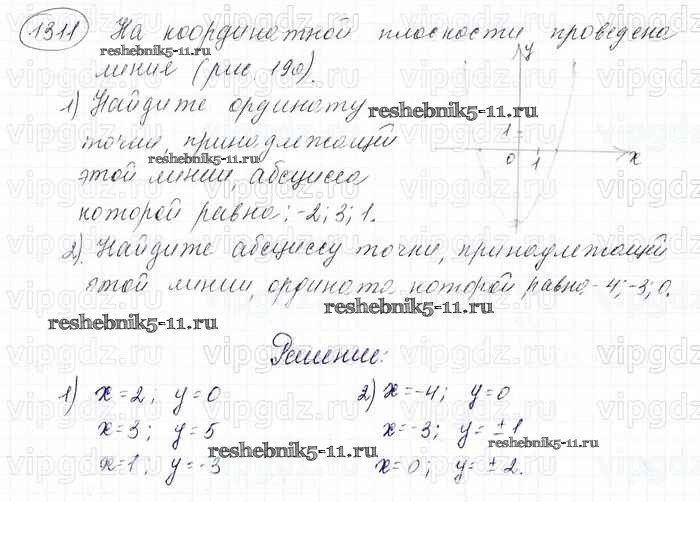 1311 На координатной плоскости проведена
линия (рис. 190).
1) Найдите ординату
точки, принадлежащей
этой линии, абсцисса
которой равна: -2; 3; 1.
2). Найдите абсциссу точки, принадлежащей
этой линии, ордината которой равна -4; -3; 0.
y
1
0
1
x
Решение:
1) x=2; y=0
x=3; y=5
x=1; y=-3
2) x=-4; y=0
x=-3; y=±1
x=0; y=±2.
reshebnik5-11.ru
reshebnik5-11.ru
reshebnik5-11.ru
reshebnik5-11.ru
reshebnik5-11.ru
reshebnik5-11.ru
vipgdz.ru